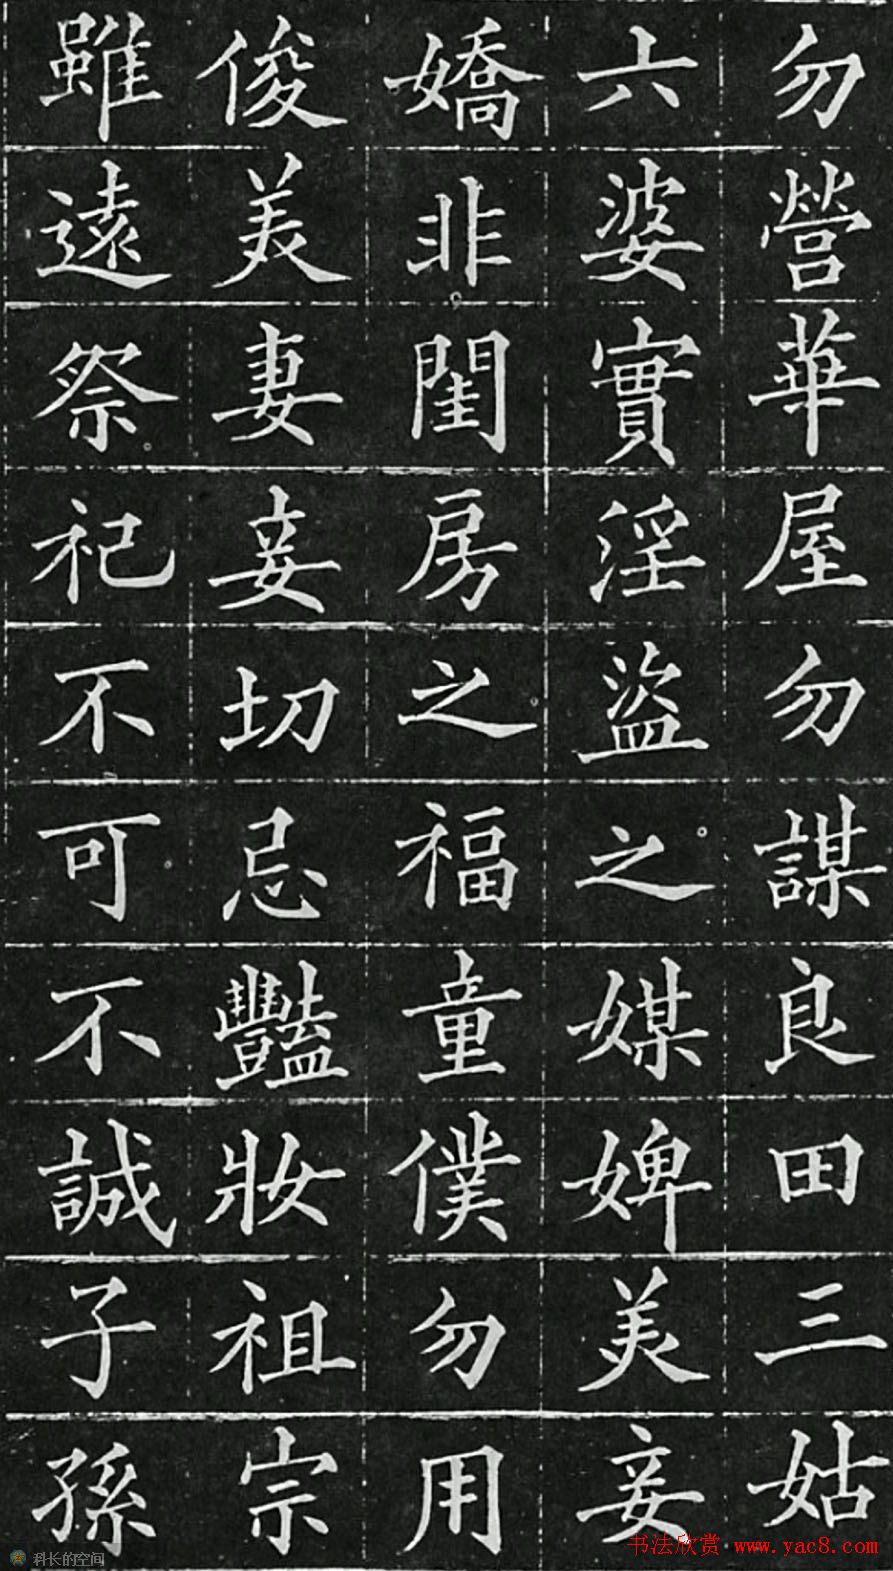 勿營華屋勿謀良田三姑
六婆實淫盜之媒婢美妾
嬌非閨房之福童僕勿用
俊美妻妾切忌豔妝祖宗
雖遠祭祀不可不誠子孫
科长的空间
书法欣赏 www.yac8.com